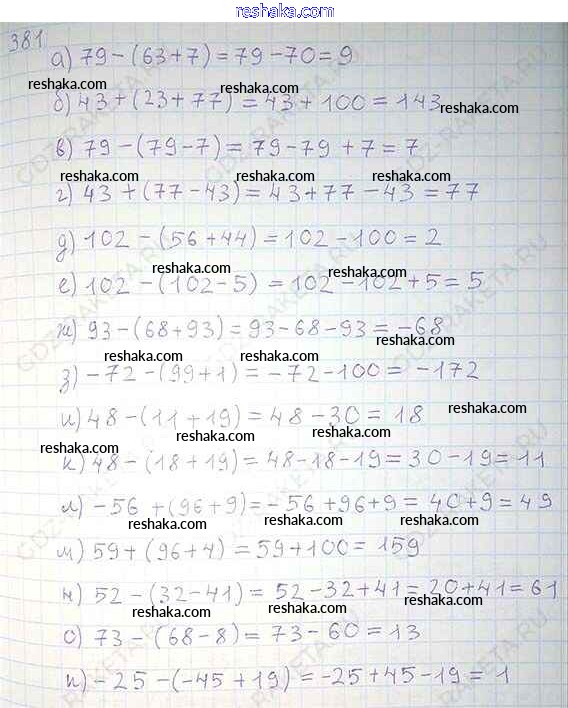 reshaka.com
381
а) 79-(63+7)=79-70=9
reshaka.com reshaka.com
б) 43+(23+77)=43+100=143
reshaka.com
в) 79-(79-7)=79-79+7=7
reshaka.com reshaka.com
г) 43+(77-43)=43+77-43=77
д) 102-(56+44)=102-100=2
reshaka.com reshaka.com
е) 102-(102-5)=102-102+5=5
ж) 93-(68+93)=93-68-93=-68
reshaka.com reshaka.com
з) -72-(99+1)=-72-100=-172
и) 48-(11+19)=48-30=18
reshaka.com
reshaka.com reshaka.com
к) 48-(18+19)=48-18-19=30-19=11
л) -56+(96+9)=-56+96+9=40+9=49
reshaka.com reshaka.com
м) 59+(96+4)=59+100=159
н) 52-(32-41)=52-32+41=20+41=61
reshaka.com reshaka.com
о) 73-(68-8)=73-60=13
reshaka.com reshaka.com
п) -25-(-45+19)=-25+45-19=1
GDZ-RAKETA.RU